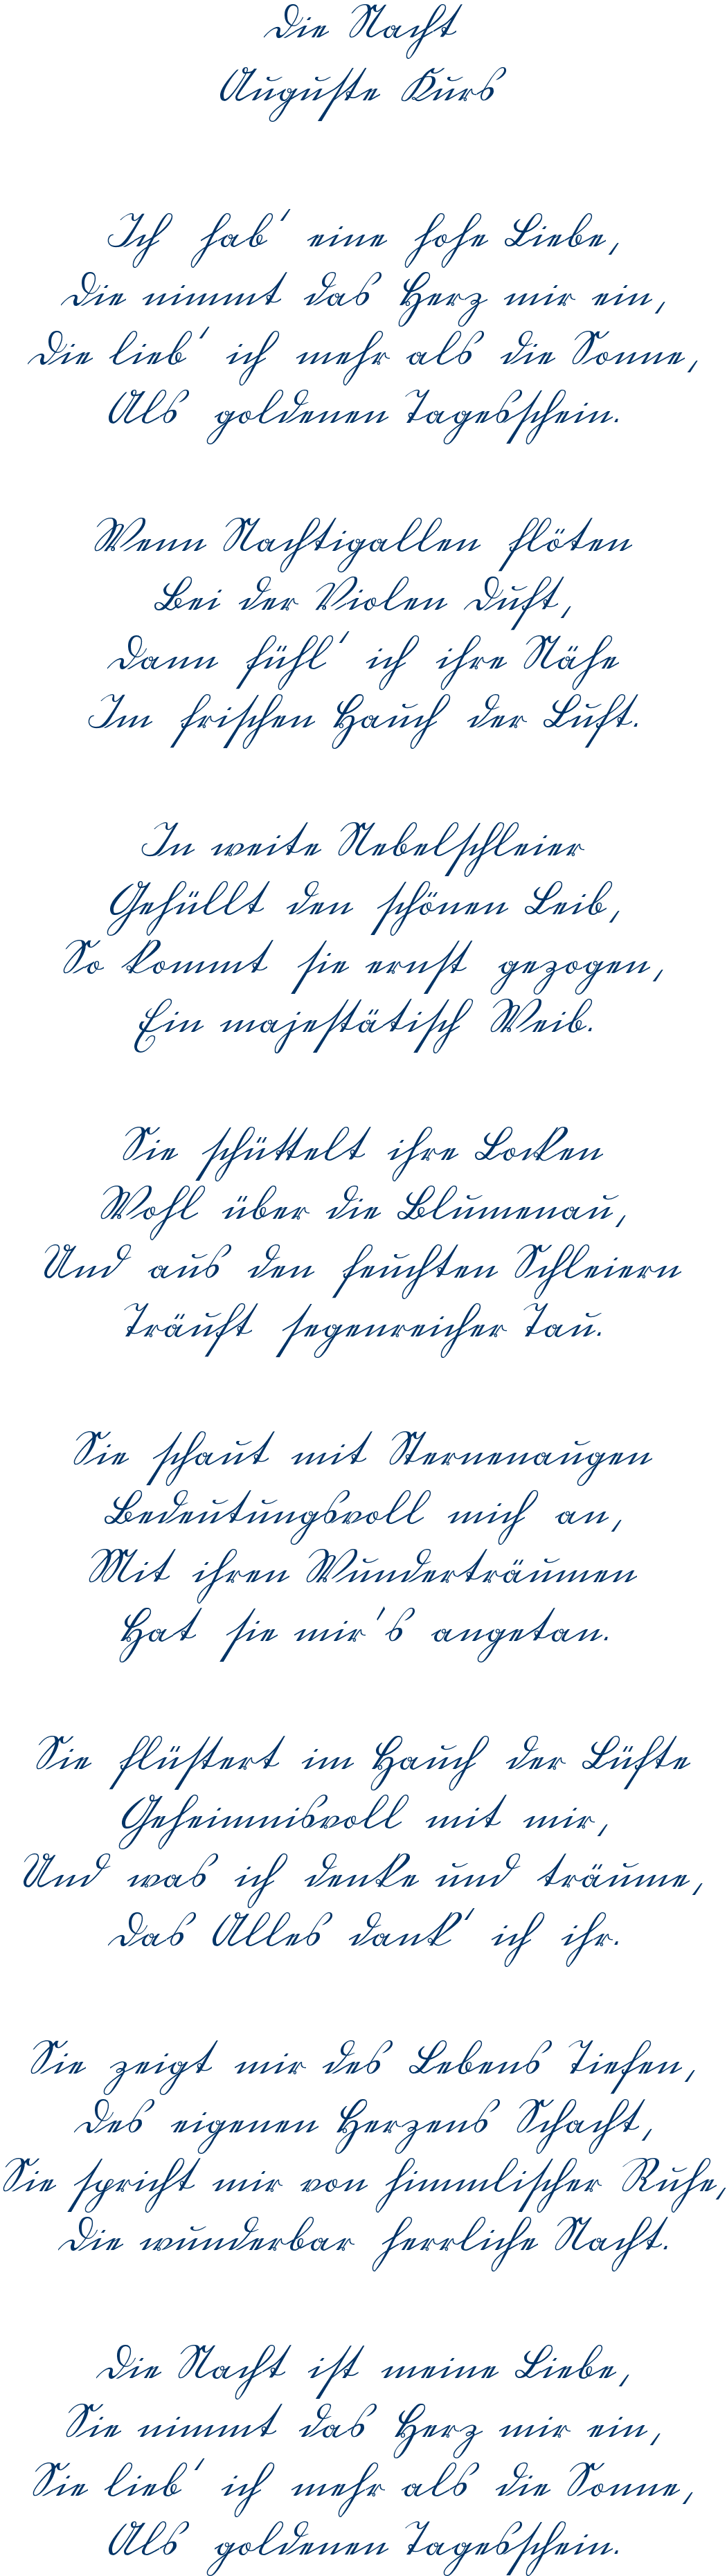 Die Nacht
Auguste Kurs
Ich hab' eine hohe Liebe,
Die nimmt das Herz mir ein,
Die lieb' ich mehr als die Sonne,
Als goldenen Tagesschein.
Wenn Nachtigallen flöten
Bei der Violen Duft,
Dann fühl' ich ihre Nähe
Im frischen Hauch der Luft.
In weite Nebelschleier
Gehüllt den schönen Leib,
So kommt sie ernst gezogen,
Ein majestätisch Weib.
Sie schüttelt ihre Locken
Wohl über die Blumenau,
Und aus den feuchten Schleiern
Träuft segenreicher Tau.
Sie schaut mit Sternenaugen
Bedeutungsvoll mich an,
Mit ihren Wunderträumen
Hat sie mir's angetan.
Sie flüstert im Hauch der Lüfte
Geheimnisvoll mit mir,
Und was ich denke und träume,
Das Alles dank' ich ihr.
Sie zeigt mir des Lebens Tiefen,
Des eigenen Herzens Schacht,
Sie spricht mir von himmlischer Ruhe,
Die wunderbar herrliche Nacht.
Die Nacht ist meine Liebe,
Sie nimmt das Herz mir ein,
Sie lieb' ich mehr als die Sonne,
Als goldenen Tagesschein.